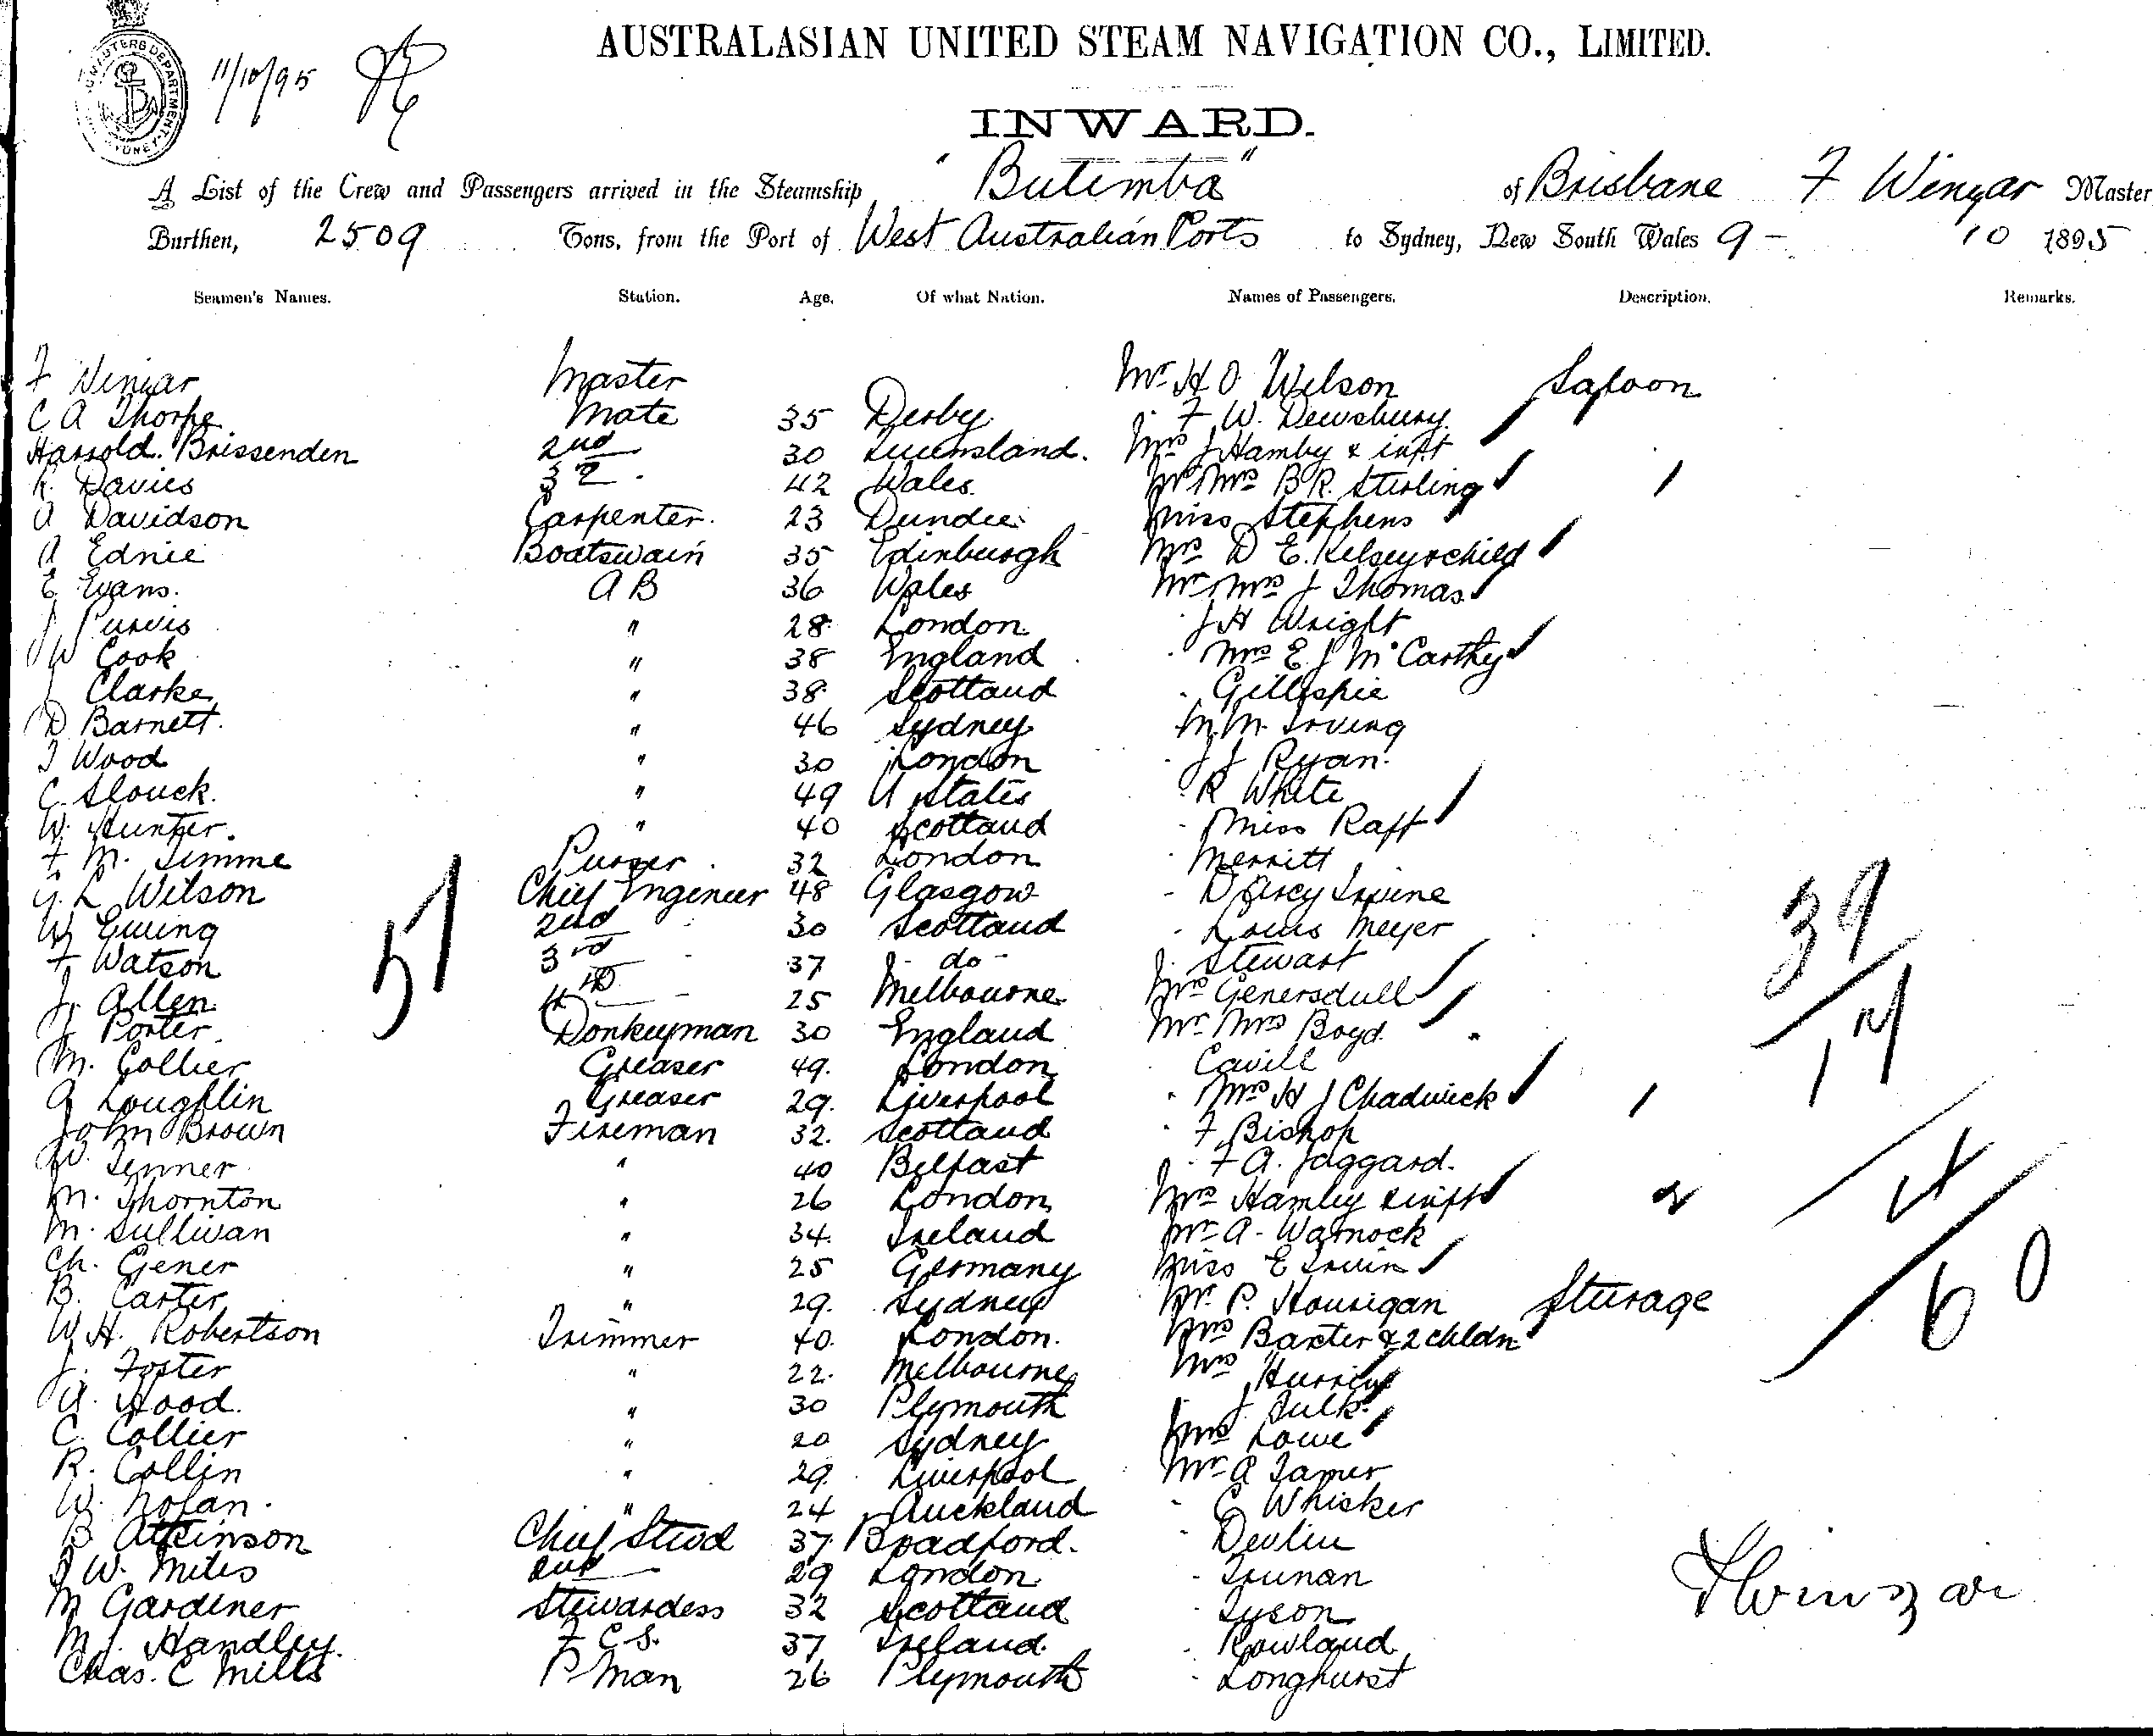 11/10/95
AUSTRALASIAN UNITED STEAM NAVIGATION CO., LIMITED.
INWARD.
A List of the Crew and Passengers arrived in the Steamship "Butimba" of Brisbane F Winzar Master
Burthen, 2509 Tons, from the Port of West Australian Ports to Sydney, New South Wales 9 - 10 1895
Seamen's Names. Station. Age. Of what Nation. Names of Passengers. Description. Remarks.
F Winzar Master Mr H O Wilson Saloon
C A Thorpe Mate 35 Derby F W. Dewsbury
Harrold Brissenden 2nd 30 Queensland. Mrs J Hamby & inft
R. Davies 3rd 42 Wales. Mr Mrs B R. Stirling
A Davidson Carpenter. 23 Dundee Miss Stephens
A Ednie Boatswain 35 Edinburgh Mrs D E. Kelsey & child
E Evans. A B 36 Wales Mr Mrs J Thomas
J Purvis " 28 London J H Wright
W Cook " 38 England Mrs E J McCarthy
J Clarke " 38 Scotland Gillespie
D Barnett. " 46 Sydney M. M. Irving
J Wood " 30 London J J Ryan.
C. Slouck. " 49 U States R White
W. Hunter. " 40 Scotland Miss Raff
F M. Timme Purser 32 London Merritt
G. L Wilson Chief Engineer 48 Glasgow D'Arcy Irvine
W Ewing 2nd 30 Scotland Louis Meyer
F Watson 3rd 37 - do - J. Stewart
J. Allen 4th 25 Melbourne Mrs Genersdull
J Porter. Donkeyman 30 England Mr Mrs Boyd
M. Collier Greaser 49. London Cavill
A Loughlin Greaser 29. Liverpool Mrs H J Chadwick
John Brown Fireman 32. Scotland F Bishop
W. Jenner " 40 Belfast F A. Jaggard.
M. Thornton " 26 London Mrs Hamley & inft 2
M. Sullivan " 34. Ireland Mr A. Warnock
Ch. Gener " 25 Germany Miss E Irvin
B. Carter " 29. Sydney Mr. P. Hourigan Sturage
W. H. Robertson Trimmer 40. London. Mrs Baxter & 2 chldn
J. Foster " 22. Melbourne Mrs
A. Hood. " 30 Plymouth J. Julk
C. Collier " 20 Sydney Mrs Lowe
R. Collin " 29. Liverpool Mr A Tamer
W. Nolan. " 24 Auckland C Whisker
B Atkinson Chief Stwd 37 Bradford. Devlin
J W. Miles 2nd 29 London Trunan
M Gardiner Stewardess 32 Scotland Tyson
M J. Handley. F C S. 37 Ireland. Rowland
Chas. C Mills P Man 26 Plymouth Longhurst
51
39
14
60
F Winzar